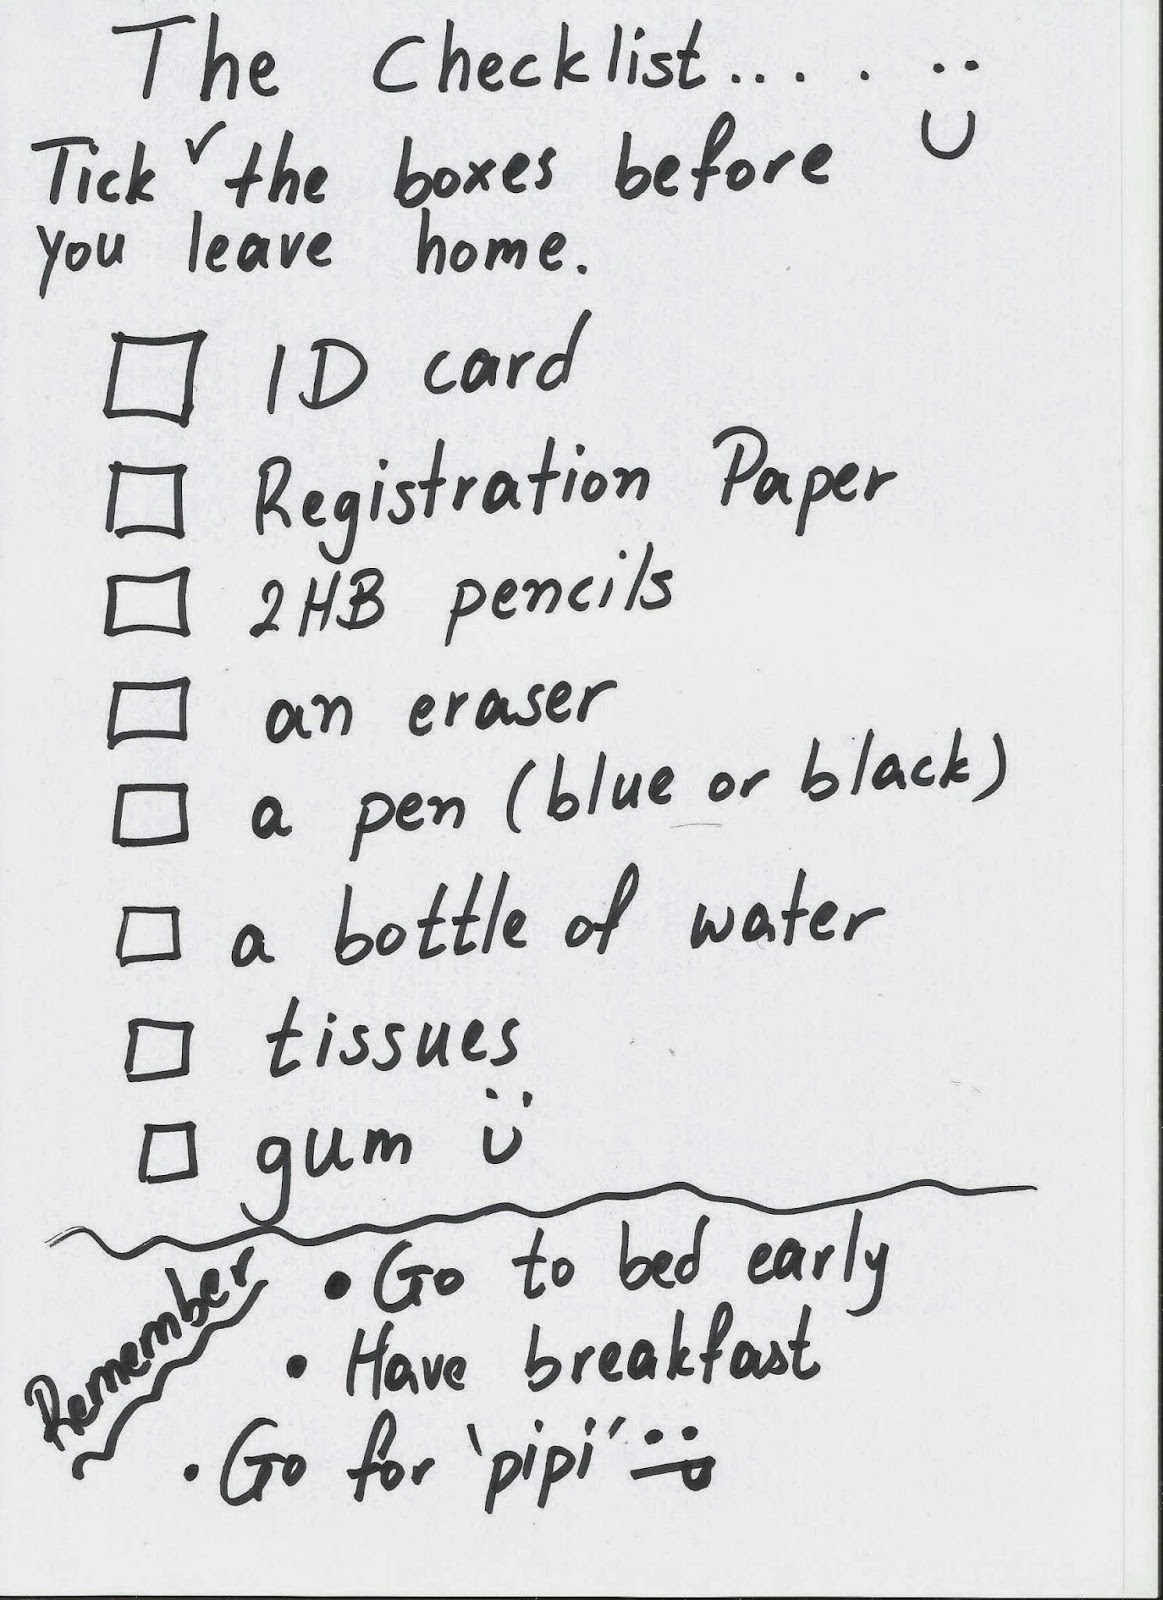 The Checklist.....
Tick ✓ the boxes before
you leave home.
ID card
Registration Paper
2HB pencils
an eraser
a pen (blue or black)
a bottle of water
tissues
gum
Remember
• Go to bed early
• Have breakfast
• Go for 'pipi'